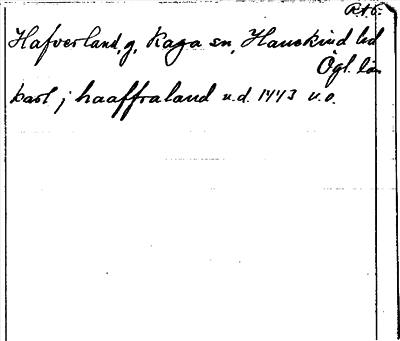 Hafverland, g, Kaga sn, Hanekind hd
Ögl. län
karl j haaffraland u.d. 1443 v.o.